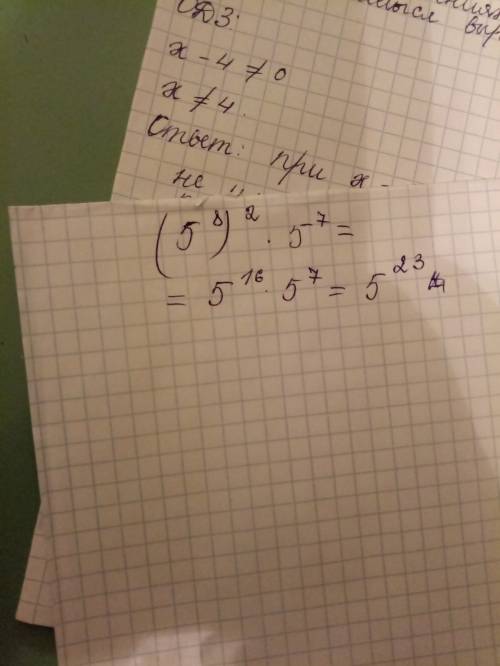 ОДЗ:
x - 4 ≠ 0
x ≠ 4.
Ответ: при x -
не
(5⁸)² · 5⁷ =
= 5¹⁶ · 5⁷ = 5²³